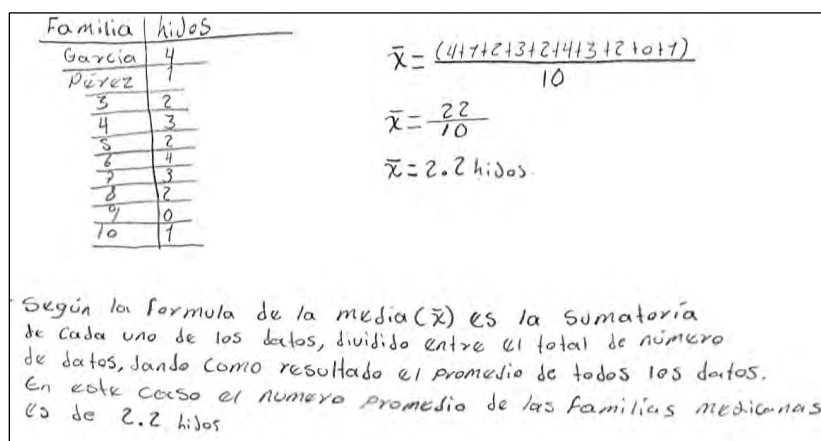 Familia hijos
García 4
Pérez 1
3 2
4 3
5 2
6 4
7 3
8 2
9 0
10 1
x̄ = (4+1+2+3+2+4+3+2+0+1) / 10
x̄ = 22 / 10
x̄ = 2.2 hijos.
Según la formula de la media (x̄) es la sumatoria
de cada uno de los datos, dividido entre el total de número
de datos, dando como resultado el promedio de todos los datos.
En este caso el numero promedio de las familias mexicanas
es de 2.2 hijos